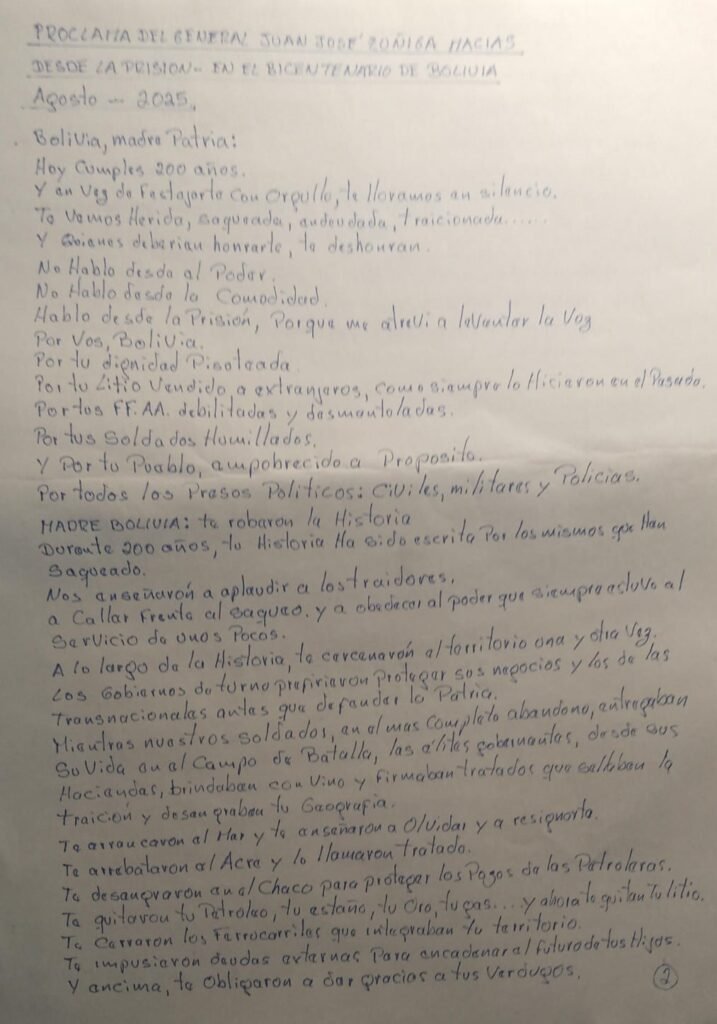 PROCLAMA DEL GENERAL JUAN JOSÉ ZÚÑIGA MACIAS
DESDE LA PRISION - EN EL BICENTENARIO DE BOLIVIA
Agosto - 2025.
Bolivia, madre Patria:
Hoy Cumples 200 años.
Y en Vez de Festejarte Con Orgullo, te lloramos en silencio.
Te Vemos Herida, saqueada, endeudada, traicionada......
Y Quienes deberian honrarte, te deshonran.
No Hablo desde el Poder.
No Hablo desde la Comodidad.
Hablo desde la Prisión, Porque me atreví a levantar la Voz
Por Vos, Bolivia.
Por tu dignidad Pisoteada
Por tu Litio Vendido a extranjeros, como siempre lo Hicieron en el Pasado.
Por tus FF.AA. debilitadas y desmanteladas.
Por tus Soldados Humillados.
Y Por tu Pueblo, empobrecido a Proposito.
Por todos los Presos Politicos: Civiles, militares y Policias.
MADRE BOLIVIA: te robaron la Historia
Durante 200 años, tu Historia Ha sido escrita Por los mismos que Han
Saqueado.
Nos enseñaron a aplaudir a los traidores,
a Callar Frente al saqueo. y a obedecer al poder que siempre estuvo al
Servicio de unos Pocos.
A lo largo de la Historia, te cercenaron el territorio una y otra Vez.
Los Gobiernos de turno prefirieron Proteger sus negocios y los de las
Transnacionales antes que defender la Patria.
Mientras nuestros soldados, en el mas Completo abandono, entregaban
Su Vida en el Campo de Batalla, las élites gobernantes, desde sus
Haciendas, brindaban con Vino y Firmaban tratados que sellaban la
traición y desangraban tu Geografía.
Te arrancaron el Mar y te enseñaron a Olvidar y a resignarte.
Te arrebataron el Acre y lo llamaron tratado.
Te desangraron en el Chaco para proteger los Pagos de las Petroleras.
Te quitaron tu Petroleo, tu estaño, tu Oro, tu gas.... y ahora te quitan Tu litio.
Te Cerraron los Ferrocarriles que integraban tu territorio.
Te impusieron deudas externas Para encadenar el futuro de tus Hijos.
Y encima, te Obligaron a dar gracias a tus Verdugos.
2